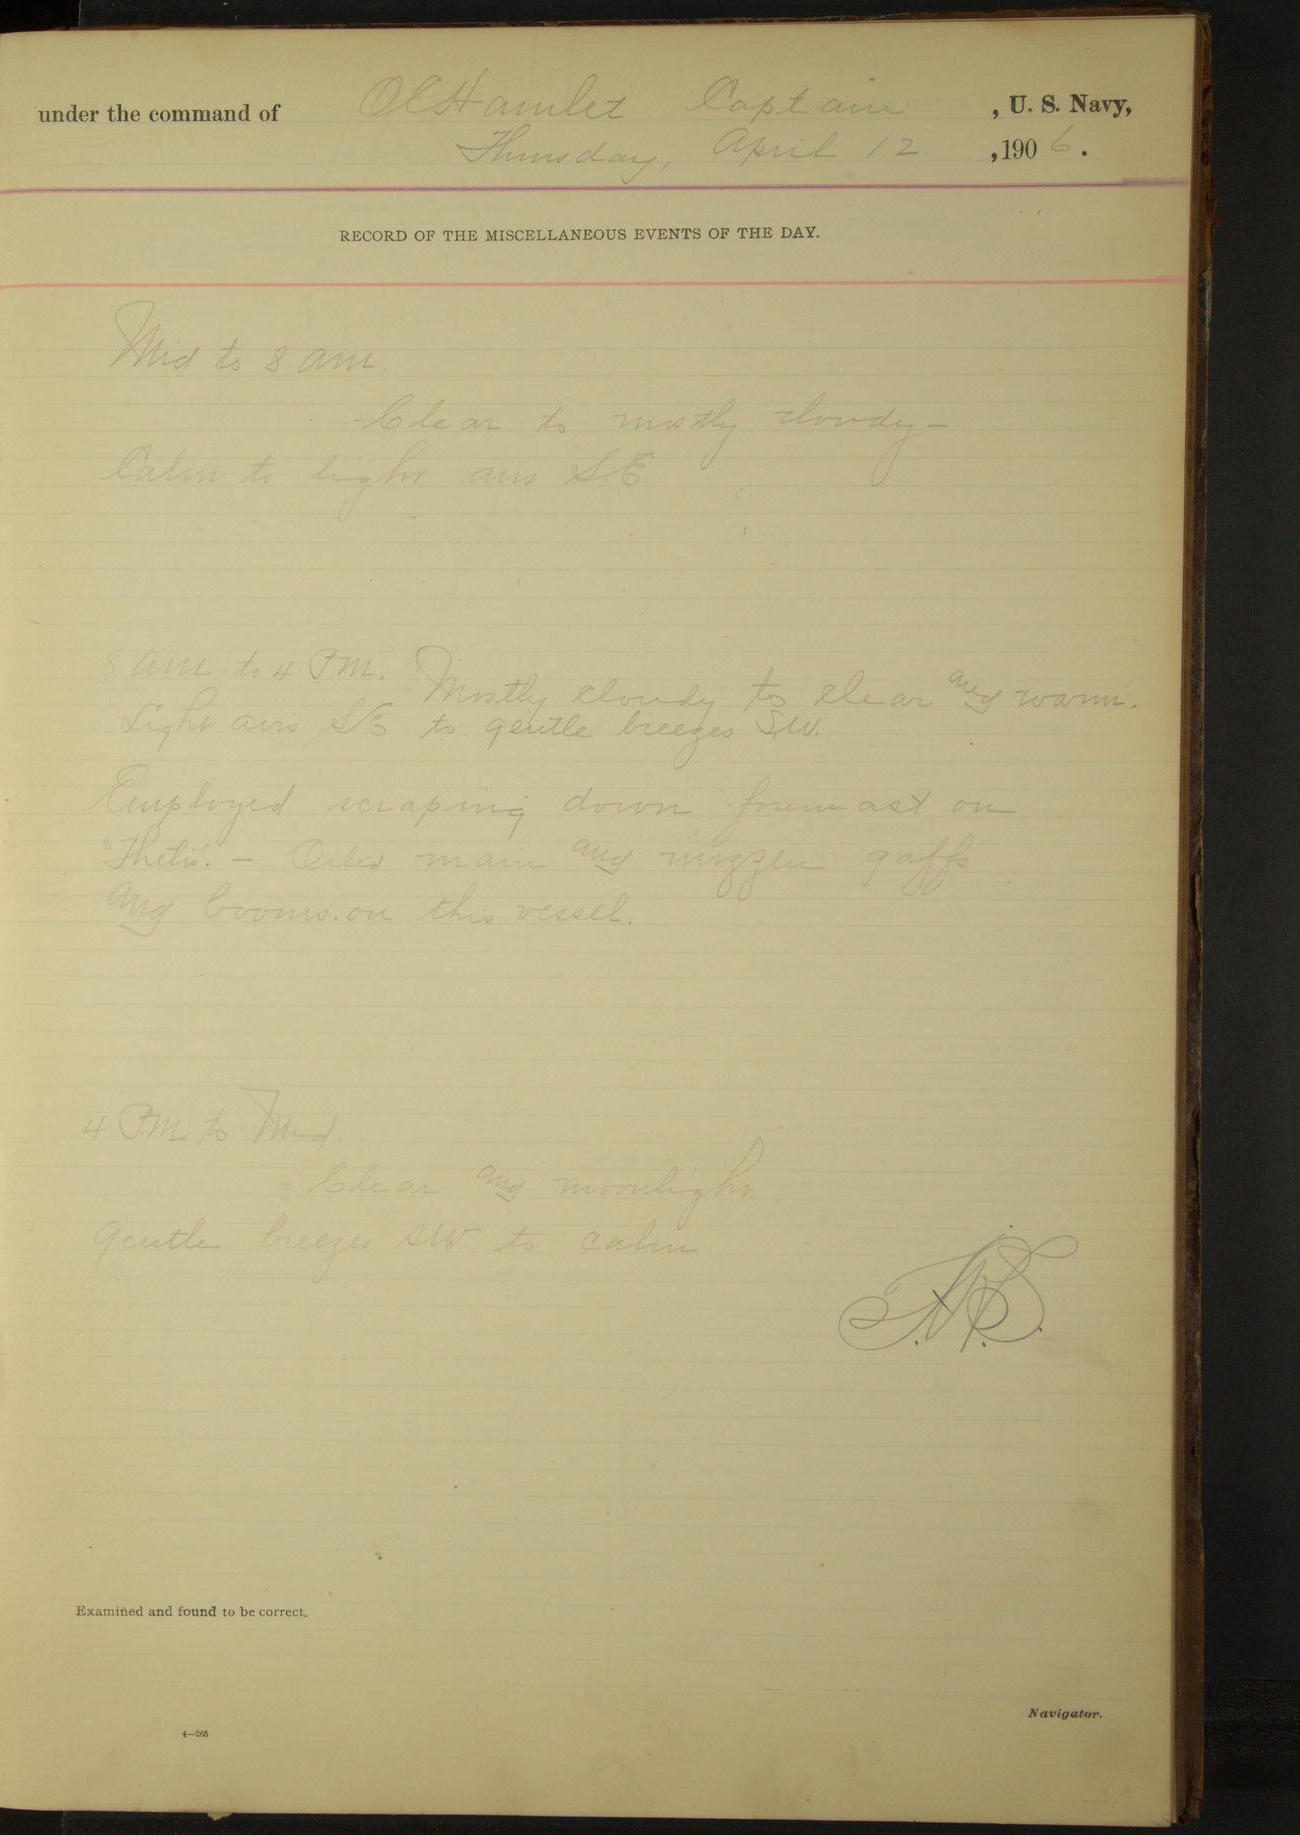 under the command of O C Hamlet Captain , U. S. Navy,
Thursday, April 12 , 1906.
RECORD OF THE MISCELLANEOUS EVENTS OF THE DAY.
Mid to 8 am.
Clear to mostly cloudy -
Calm to light airs SE
8 am to 4 P.M. Mostly cloudy to clear and warm.
Light airs SE to gentle breezes SW.
Employed scraping down foremast on
"Thetis". - Oiled main and mizzen gaffs
and booms on this vessel.
4 P.M. to Mid.
Clear and moonlight.
Gentle breezes SW to calm
Examined and found to be correct.
Navigator.
4—265